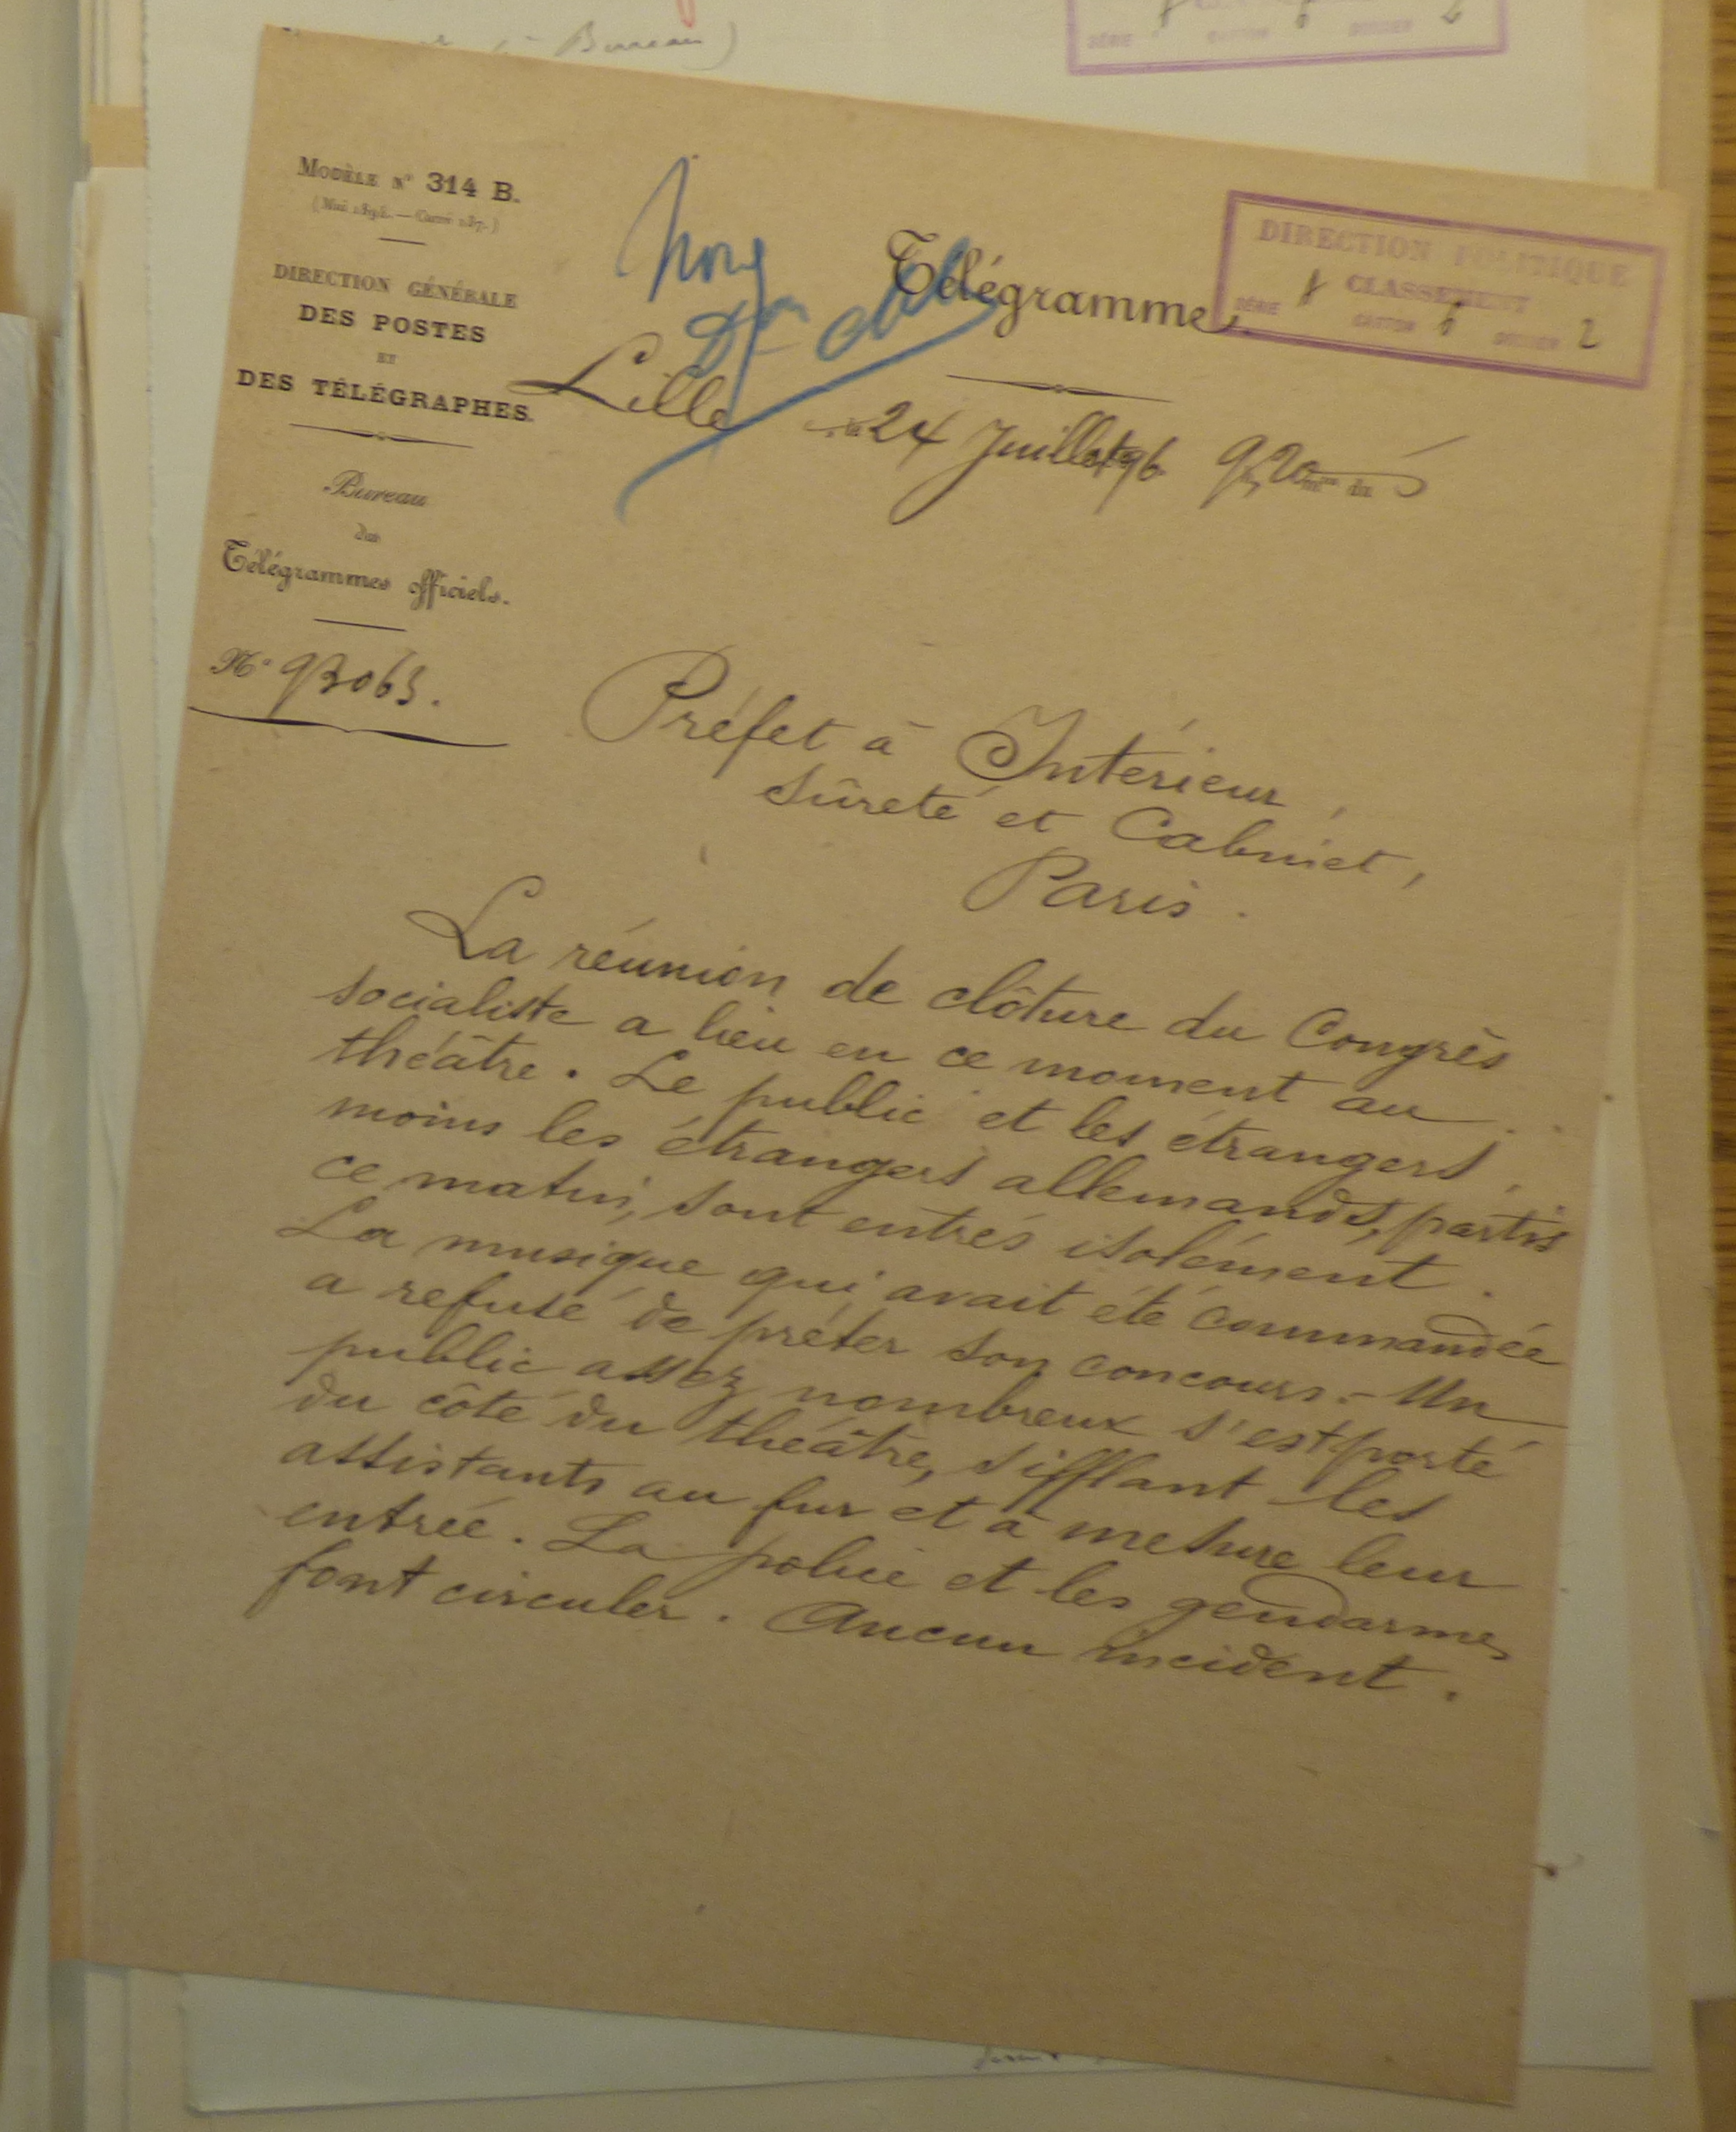 Bureau)
SÉRIE CARTON DOSSIER
MODÈLE N° 314 B.
DIRECTION GÉNÉRALE
DES POSTES
ET
DES TÉLÉGRAPHES.
Bureau
des
Télégrammes officiels.
N° 93063.
Télégramme.
DIRECTION POLITIQUE
CLASSEMENT
SÉRIE CARTON 6 DOSSIER 2
Lille, le 24 Juillet 96 9h, 20m du S
Préfet à Intérieur,
Sûreté et Cabinet,
Paris.
La réunion de clôture du Congrès
socialiste a lieu en ce moment au
théâtre. Le public et les étrangers,
moins les étrangers allemands, partis
ce matin, sont entrés isolément.
La musique qui avait été commandée
a refusé de prêter son concours. - Un
public assez nombreux s'est porté
du côté du théâtre, sifflant les
assistants au fur et à mesure leur
entrée. La police et les gendarmes
font circuler. Aucun incident.